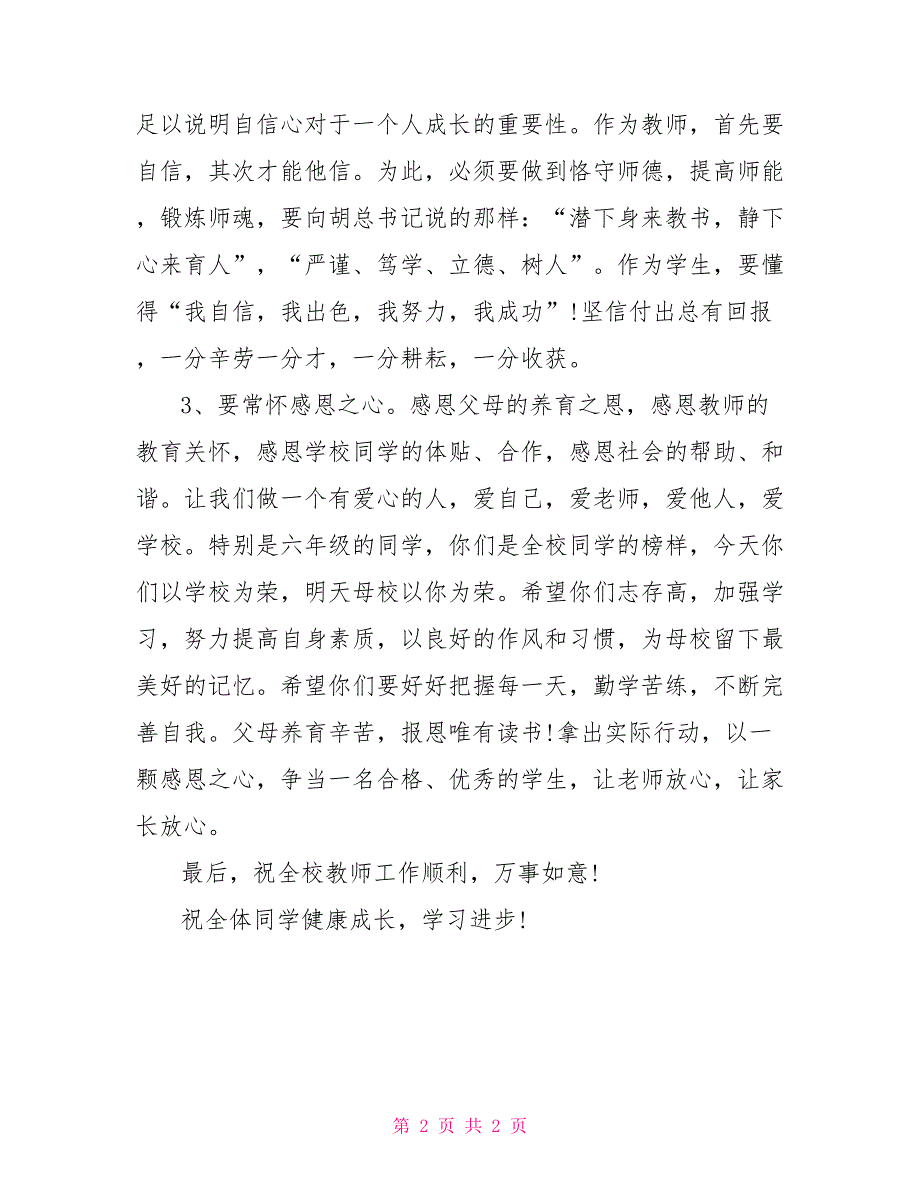 足以说明自信心对于一个人成长的重要性。作为教师，首先要
自信，其次才能他信。为此，必须要做到恪守师德，提高师能
，锻炼师魂，要向胡总书记说的那样：“潜下身来教书，静下
心来育人”，“严谨、笃学、立德、树人”。作为学生，要懂
得“我自信，我出色，我努力，我成功”!坚信付出总有回报
，一分辛劳一分才，一分耕耘，一分收获。
3、要常怀感恩之心。感恩父母的养育之恩，感恩教师的
教育关怀，感恩学校同学的体贴、合作，感恩社会的帮助、和
谐。让我们做一个有爱心的人，爱自己，爱老师，爱他人，爱
学校。特别是六年级的同学，你们是全校同学的榜样，今天你
们以学校为荣，明天母校以你为荣。希望你们志存高，加强学
习，努力提高自身素质，以良好的作风和习惯，为母校留下最
美好的记忆。希望你们要好好把握每一天，勤学苦练，不断完
善自我。父母养育辛苦，报恩唯有读书!拿出实际行动，以一
颗感恩之心，争当一名合格、优秀的学生，让老师放心，让家
长放心。
最后，祝全校教师工作顺利，万事如意!
祝全体同学健康成长，学习进步!
第 2 页 共 2 页